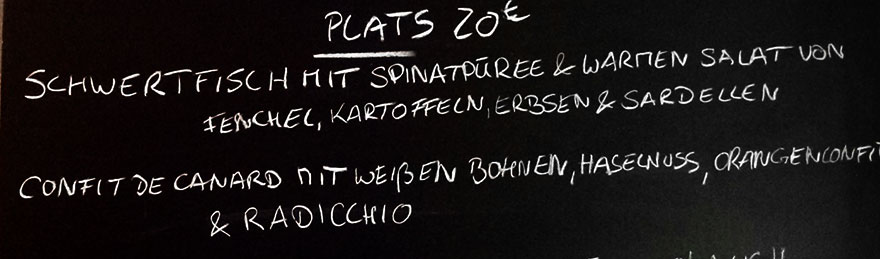 PLATS 20€
SCHWERTFISCH MIT SPINATPÜREE & WARMEN SALAT VON
FENCHEL, KARTOFFELN, ERBSEN & SARDELLEN
CONFIT DE CANARD MIT WEIßEN BOHNEN, HASELNUSS, ORANGENCONFIT
& RADICCHIO